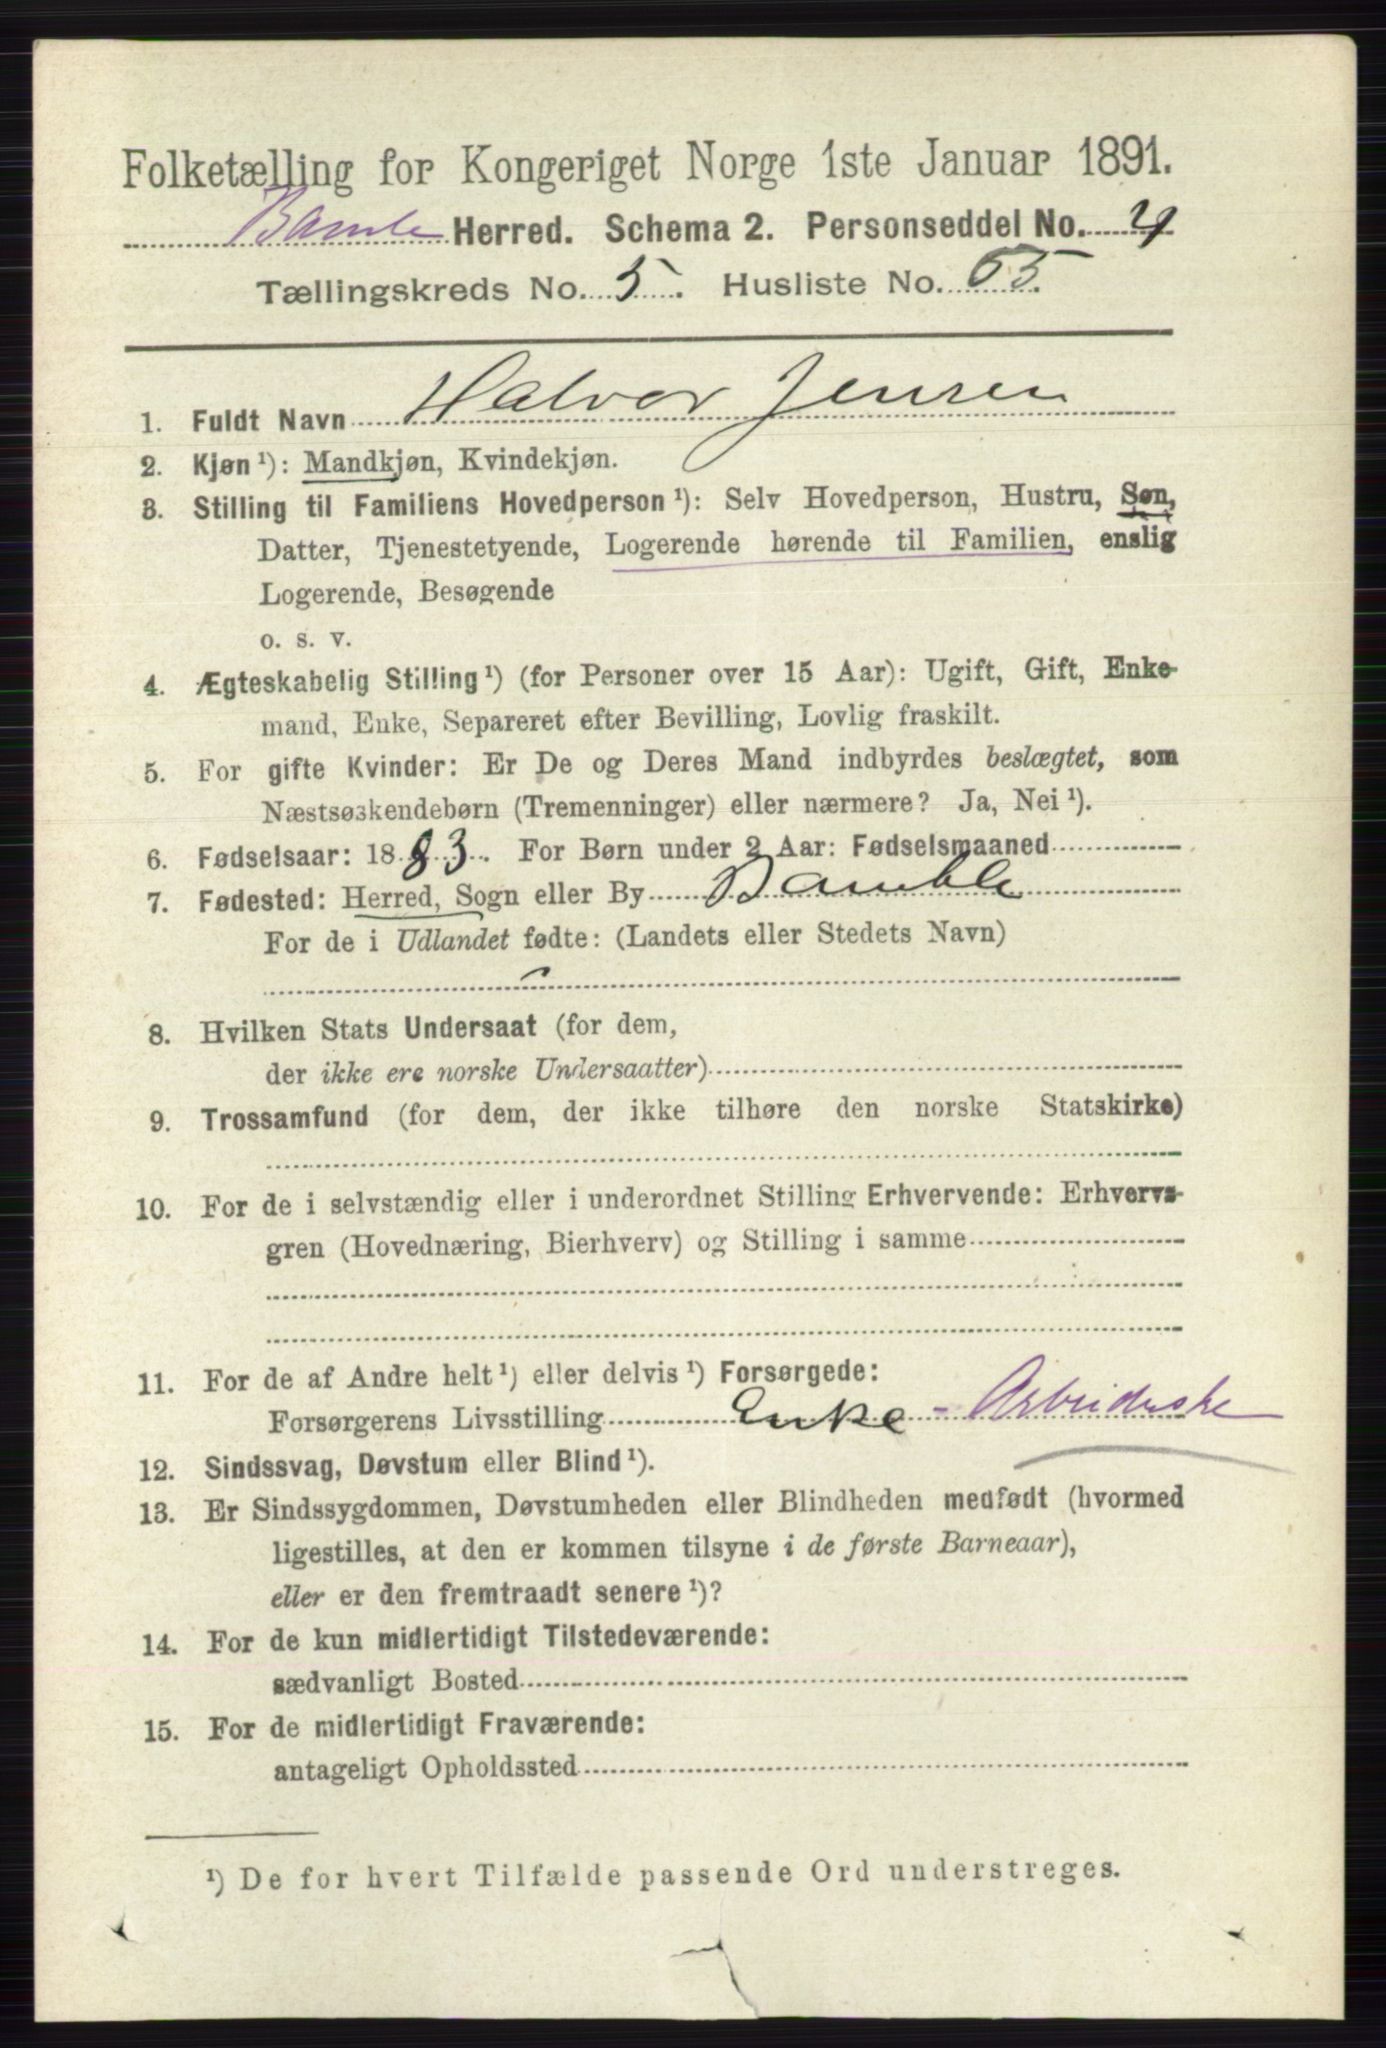 Folketælling for Kongeriget Norge 1ste Januar 1891.
Bamle Herred. Schema 2. Personseddel No.
Tællingskreds No. 5. Husliste No. 65.
1. Fuldt Navn Halvor Jensen
2. Kjøn ¹): Mandkjøn, Kvindekjøn.
3. Stilling til Familiens Hovedperson ¹): Selv Hovedperson, Hustru, Søn,
Datter, Tjenestetyende, Logerende hørende til Familien, enslig
Logerende, Besøgende
o. s. v.
4. Ægteskabelig Stilling ¹) (for Personer over 15 Aar): Ugift, Gift, Enke-
mand, Enke, Separeret efter Bevilling, Lovlig fraskilt.
5. For gifte Kvinder: Er De og Deres Mand indbyrdes beslægtet, som
Næstsøskendebørn (Tremenninger) eller nærmere? Ja, Nei ¹).
6. Fødselsaar: 1883. For Børn under 2 Aar: Fødselsmaaned
7. Fødested: Herred, Sogn eller By Bamble
For de i Udlandet fødte: (Landets eller Stedets Navn)
8. Hvilken Stats Undersaat (for dem,
der ikke ere norske Undersaatter)
9. Trossamfund (for dem, der ikke tilhøre den norske Statskirke)
10. For de i selvstændig eller i underordnet Stilling Erhvervende: Erhvervs-
gren (Hovednæring, Bierhverv) og Stilling i samme
11. For de af Andre helt ¹) eller delvis ¹) Forsørgede:
Forsørgerens Livsstilling Enke - Arbeiderske
12. Sindssvag, Døvstum eller Blind ¹).
13. Er Sindssygdommen, Døvstumheden eller Blindheden medfødt (hvormed
ligestilles, at den er kommen tilsyne i de første Barneaar),
eller er den fremtraadt senere ¹)?
14. For de kun midlertidigt Tilstedeværende:
sædvanligt Bosted
15. For de midlertidigt Fraværende:
antageligt Opholdssted
¹) De for hvert Tilfælde passende Ord understreges.